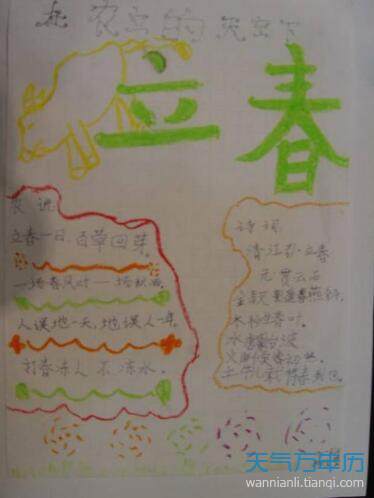 在农虫的天空下
立春
农谚
立春一日,百草回芽。
一场春风吹一场秋雨。
人误地一天,地误人一年。
打春冻人不冻水。
诗词
清江引·立春
元·贯云石
金钗影摇春燕斜,
木杪生春叶。
水塘春始波,
火候春初热。
土牛儿载将春到也。
天气万年历
wannianli.tianqi.com